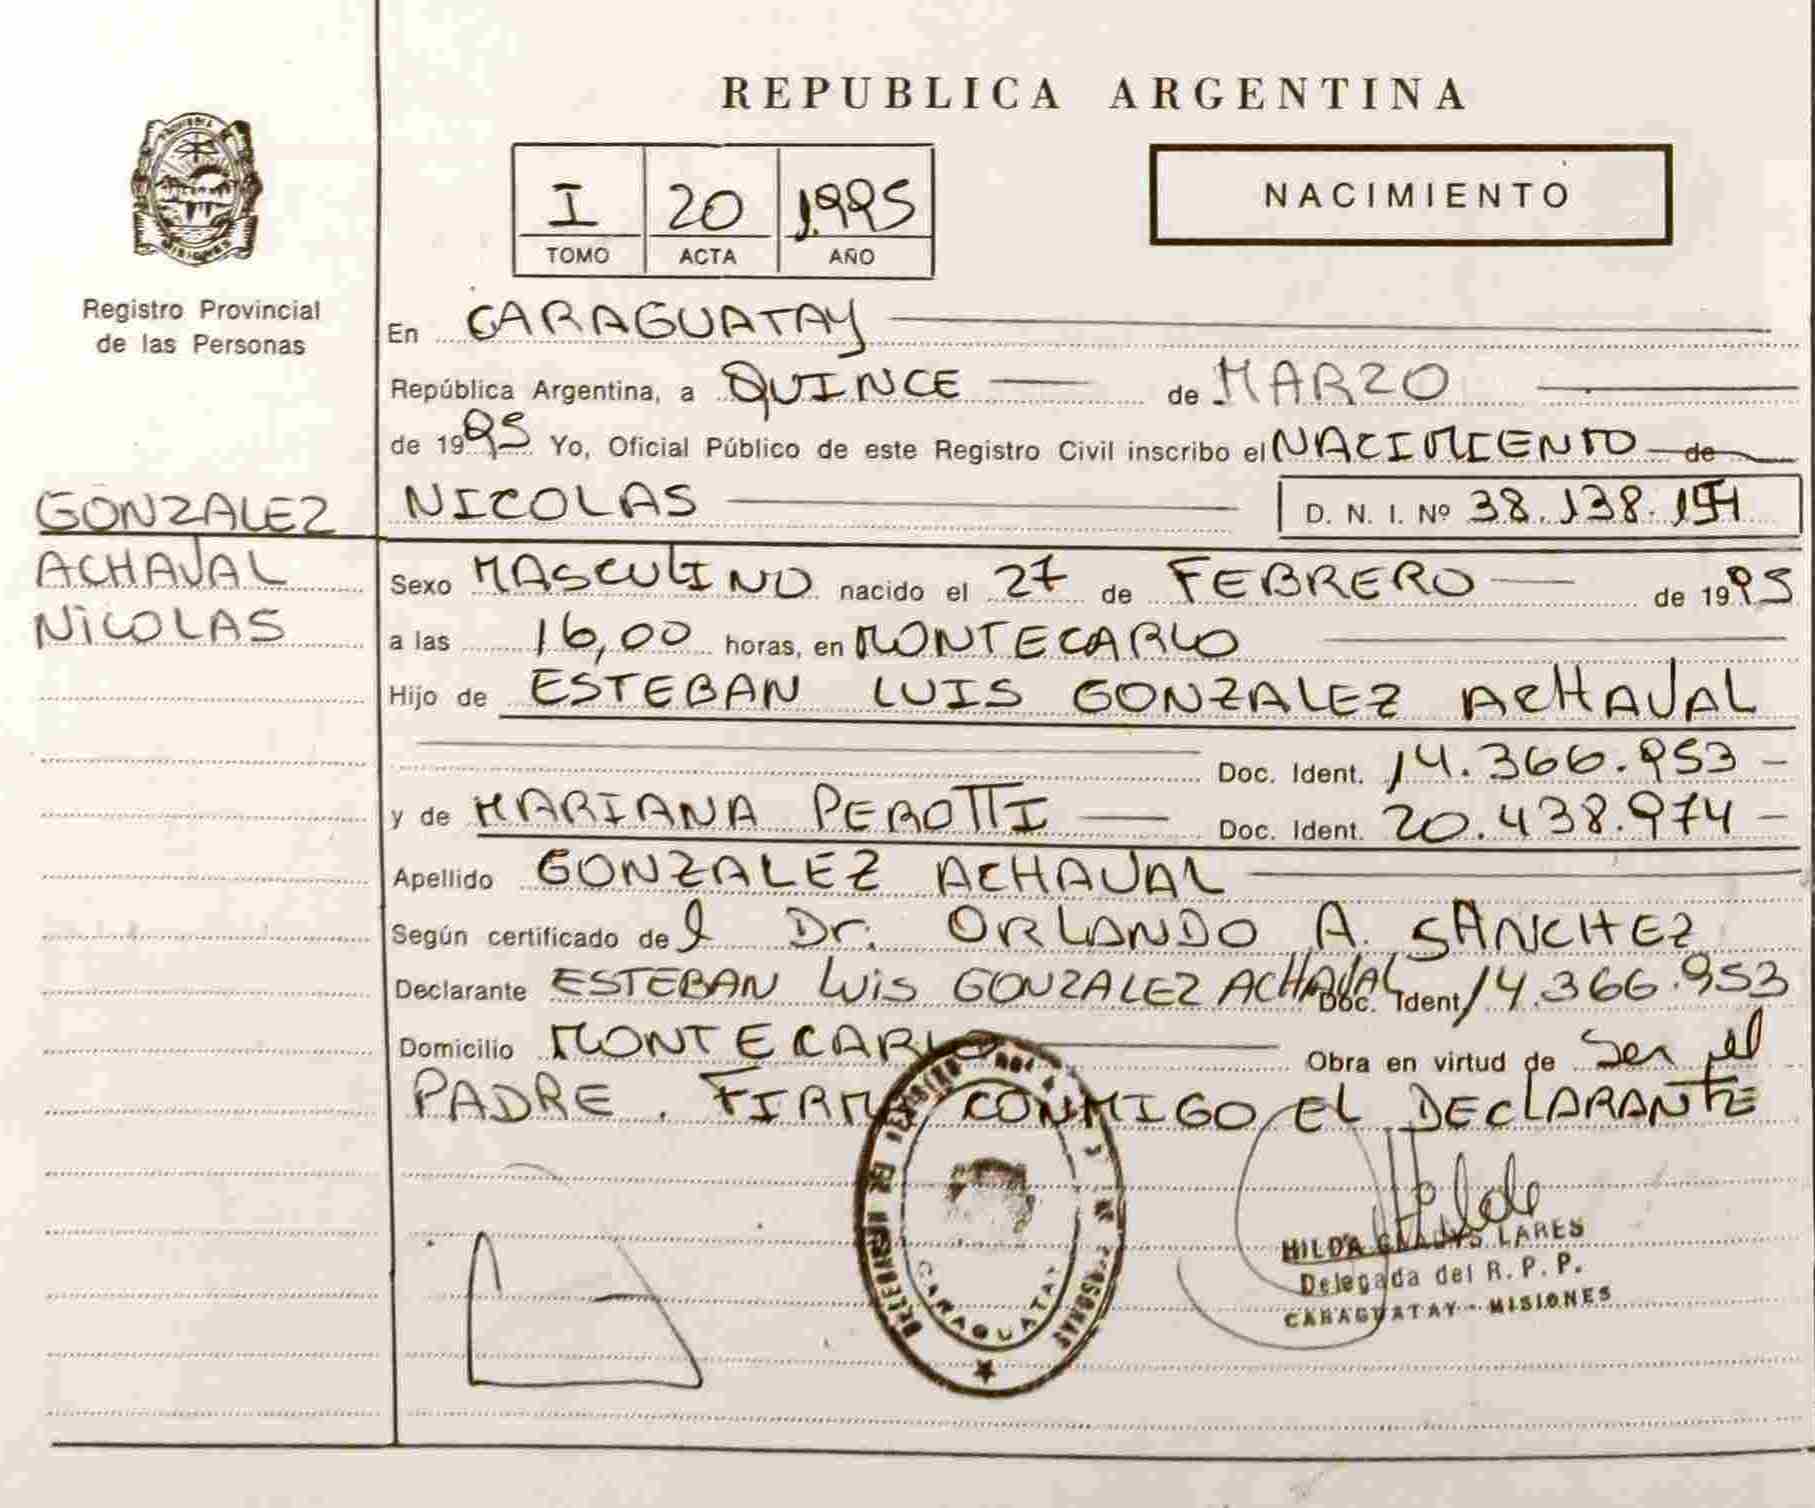 REPUBLICA ARGENTINA
PROVINCIA DE
MISIONES
I 20 1995
TOMO ACTA AÑO
NACIMIENTO
Registro Provincial
de las Personas
En CARAGUATAY
República Argentina, a QUINCE de MARZO
de 1995 Yo, Oficial Público de este Registro Civil inscribo el NACIMIENTO de
GONZALEZ
ACHAVAL
NICOLAS
NICOLAS D. N. I. Nº 38.138.
Sexo MASCULINO nacido el 27 de FEBRERO de 1995
a las 16,00 horas, en MONTECARLO
Hijo de ESTEBAN LUIS GONZALEZ ACHAVAL
Doc. Ident. 14.366.953 -
y de MARIANA PEROTTI Doc. Ident. 20.438.974 -
Apellido GONZALEZ ACHAVAL
Según certificado del Dr. ORLANDO A. SANCHEZ
Declarante ESTEBAN LUIS GONZALEZ ACHAVAL Doc. Ident 14.366.953
Domicilio MONTECARLO Obra en virtud de Ser el
PADRE. FIRMA CONMIGO EL DECLARANTE
CARAGUATAY
Hilda
HILDA GLADYS LARES
Delegada del R. P. P.
CARAGUATAY - MISIONES